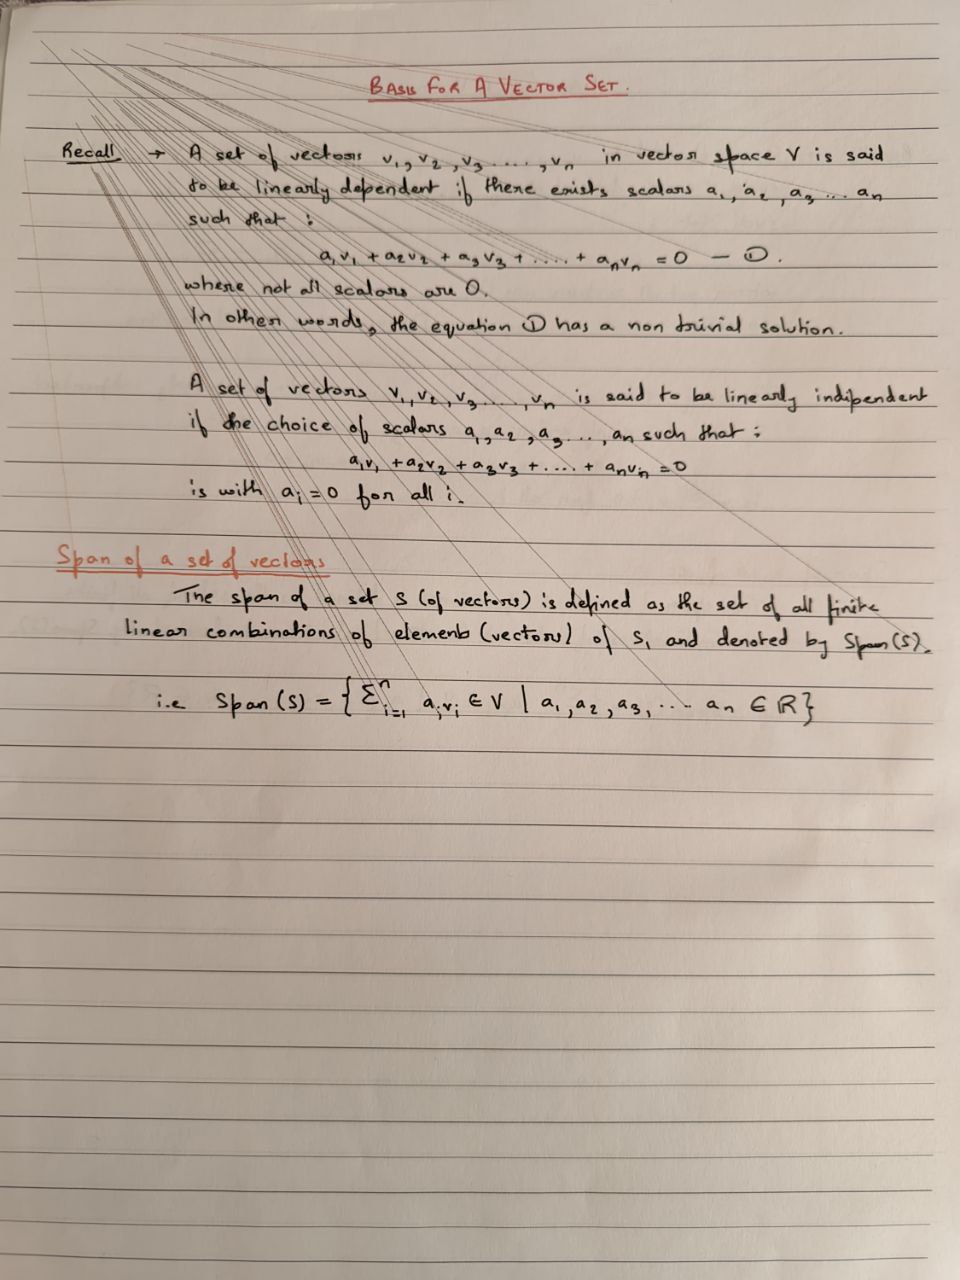 BASIS FOR A VECTOR SET.
Recall → A set of vectors v₁, v₂, v₃ ....., vₙ in vector space V is said
to be linearly dependent if there exists scalars a₁, a₂, a₃ ... aₙ
such that :
a₁v₁ + a₂v₂ + a₃v₃ + ..... + aₙvₙ = 0 — ①.
where not all scalars are 0.
In other words, the equation ① has a non trivial solution.
A set of vectors v₁, v₂, v₃....., vₙ is said to be linearly indipendent
if the choice of scalars a₁, a₂, a₃..., aₙ such that :
a₁v₁ + a₂v₂ + a₃v₃ + ..... + aₙvₙ = 0
is with aᵢ = 0 for all i.
Span of a set of vectors
The span of a set S (of vectors) is defined as the set of all finite
linear combinations of elements (vectors) of S, and denoted by Span(S).
i.e Span (S) = { Σⁿᵢ₌₁ aᵢvᵢ ∈ V | a₁, a₂, a₃, ... aₙ ∈ R}